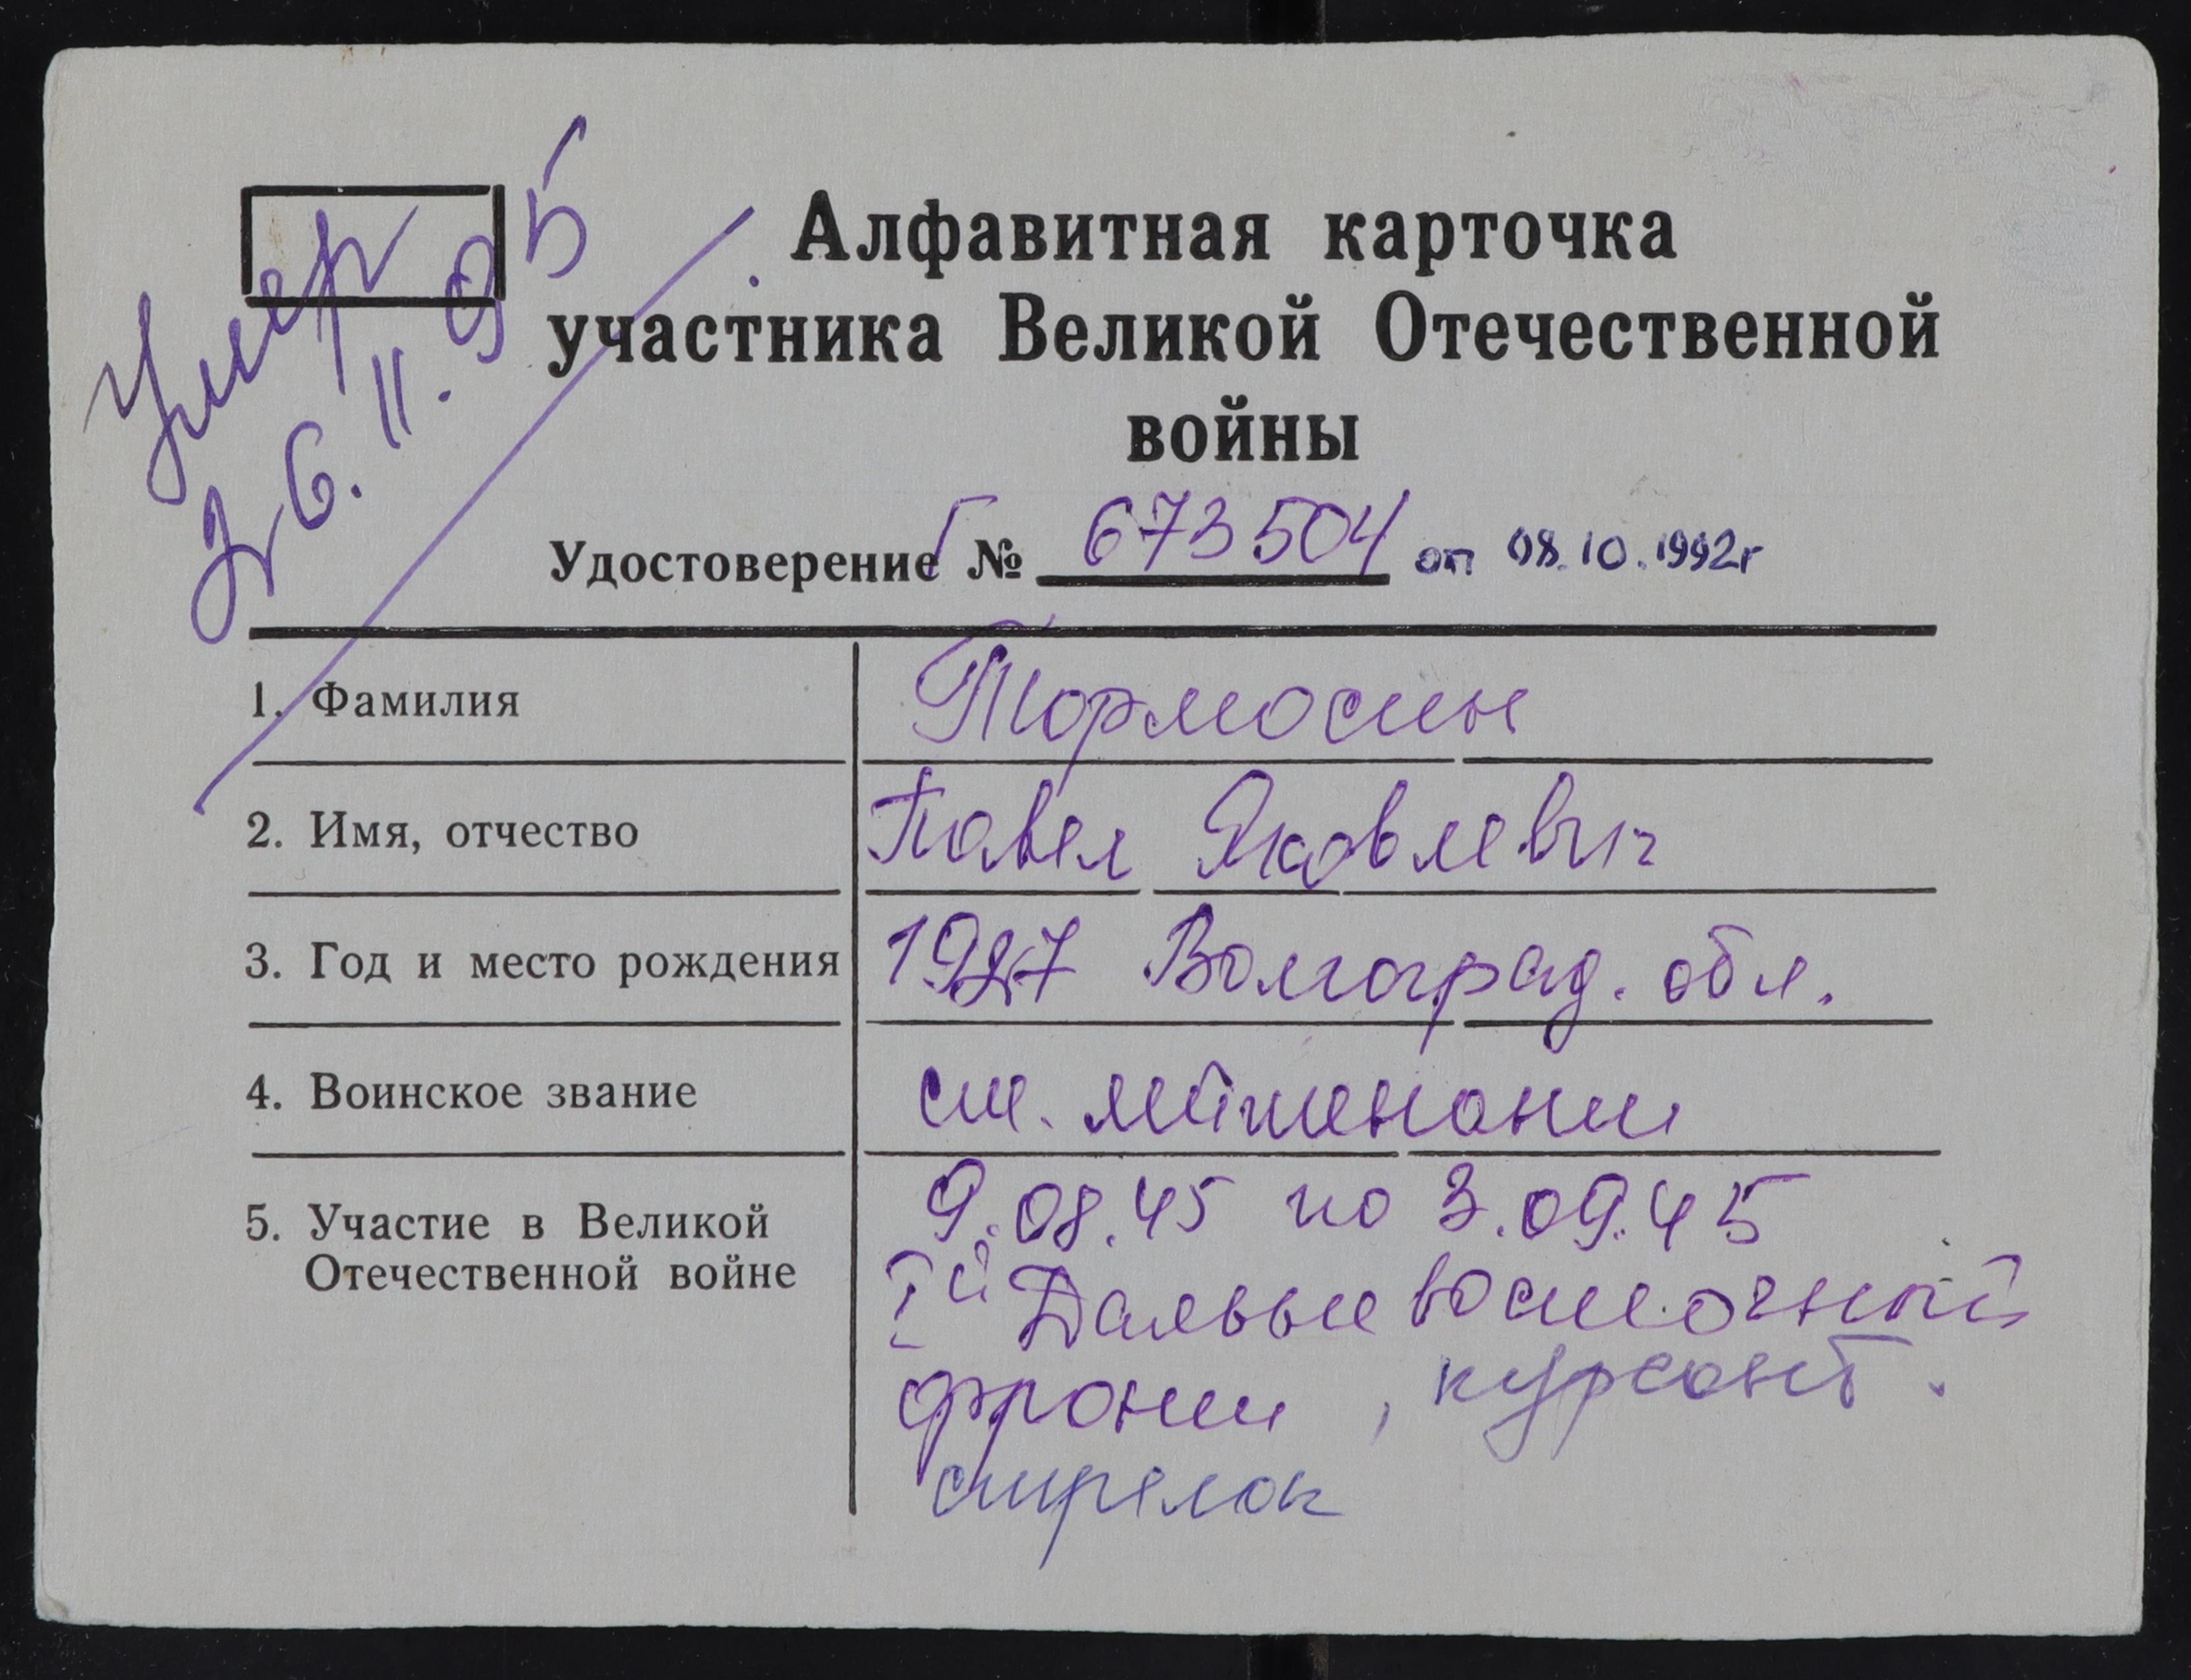 Умер
26.11.95
Алфавитная карточка
участника Великой Отечественной
войны
Удостоверение Г № 673504 от 08.10.1992г
1. Фамилия Тормосин
2. Имя, отчество Павел Яковлевич
3. Год и место рождения 1927 Волгоград. обл.
4. Воинское звание ст. лейтенант
5. Участие в Великой 9.08.45 по 3.09.45
Отечественной войне Iй Дальневосточный
фронт, курсант.
стрелок